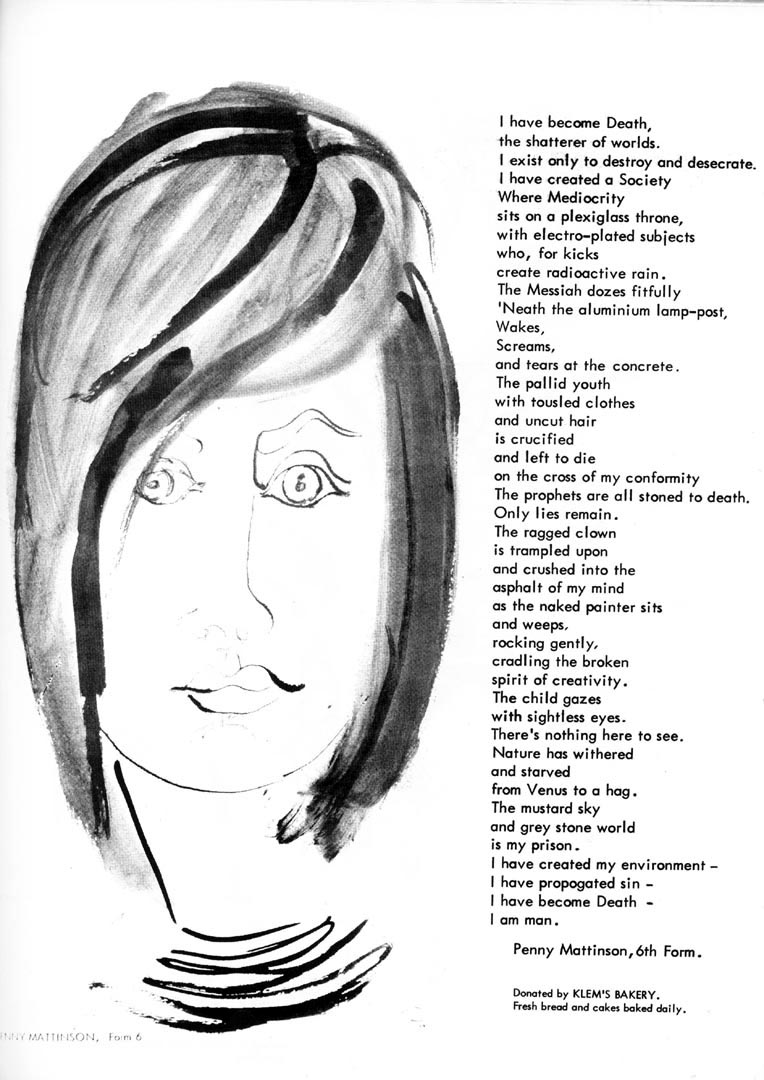 I have become Death,
the shatterer of worlds.
I exist only to destroy and desecrate.
I have created a Society
Where Mediocrity
sits on a plexiglass throne,
with electro-plated subjects
who, for kicks
create radioactive rain.
The Messiah dozes fitfully
'Neath the aluminium lamp-post,
Wakes,
Screams,
and tears at the concrete.
The pallid youth
with tousled clothes
and uncut hair
is crucified
and left to die
on the cross of my conformity
The prophets are all stoned to death.
Only lies remain.
The ragged clown
is trampled upon
and crushed into the
asphalt of my mind
as the naked painter sits
and weeps,
rocking gently,
cradling the broken
spirit of creativity.
The child gazes
with sightless eyes.
There's nothing here to see.
Nature has withered
and starved
from Venus to a hag.
The mustard sky
and grey stone world
is my prison.
I have created my environment -
I have propogated sin -
I have become Death -
I am man.
Penny Mattinson, 6th Form.
Donated by KLEM'S BAKERY.
Fresh bread and cakes baked daily.
MATTINSON, Form 6